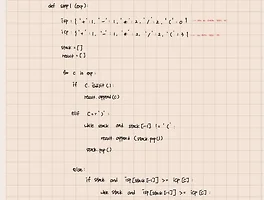 def step1 (exp):
isp : { '+' : 1, '-' : 1, '*' : 2, '/' : 2, '(' : 0 }
icp : { '+' : 1, '-' : 1, '*' : 2, '/' : 2, '(' : 3 }
stack = [ ]
result = [ ]
for c in exp:
if c.isdigit():
result.append(c)
elif c == ')':
while stack and stack[-1] != '(':
result.append(stack.pop())
stack.pop()
else:
if stack and isp[stack[-1]] >= icp[c]:
while stack and isp[stack[-1]] >= icp[c]: